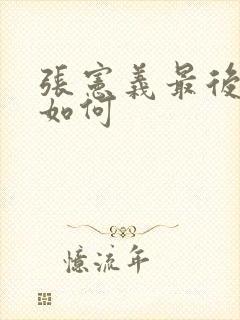 張憲義最後
如何
憶流年